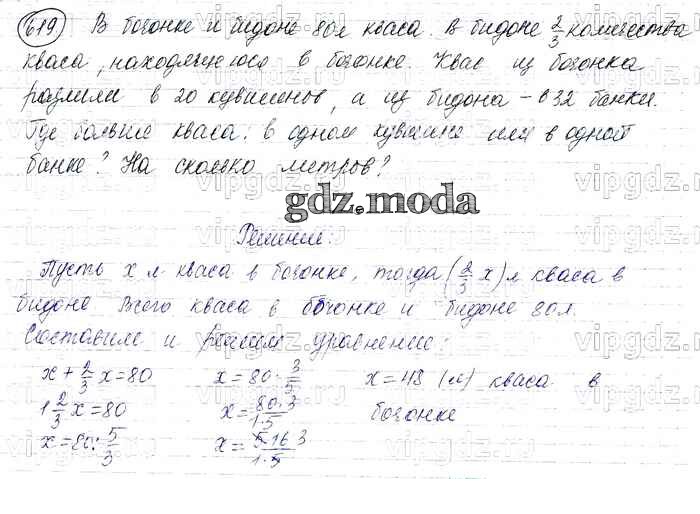 619 В бочонке и бидоне 80л кваса. В бидоне 2/3 количества
кваса, находящегося в бочонке. Квас из бочонка
разлили в 20 кувшинов, а из бидона - в 32 банки.
Где больше кваса: в одном кувшине или в одной
банке? На сколько литров?
gdz.moda
Решение:
Пусть x л кваса в бочонке, тогда (2/3 x) л кваса в
бидоне Всего кваса в бочонке и бидоне 80л.
Составим и решим уравнение:
x + 2/3 x = 80
1 2/3 x = 80
x = 80 : 5/3
x = 80 · 3/5
x = 80·3/1·5
x = 5·16·3/1·5
x = 48 (л) кваса в
бочонке
vipgdz.ru